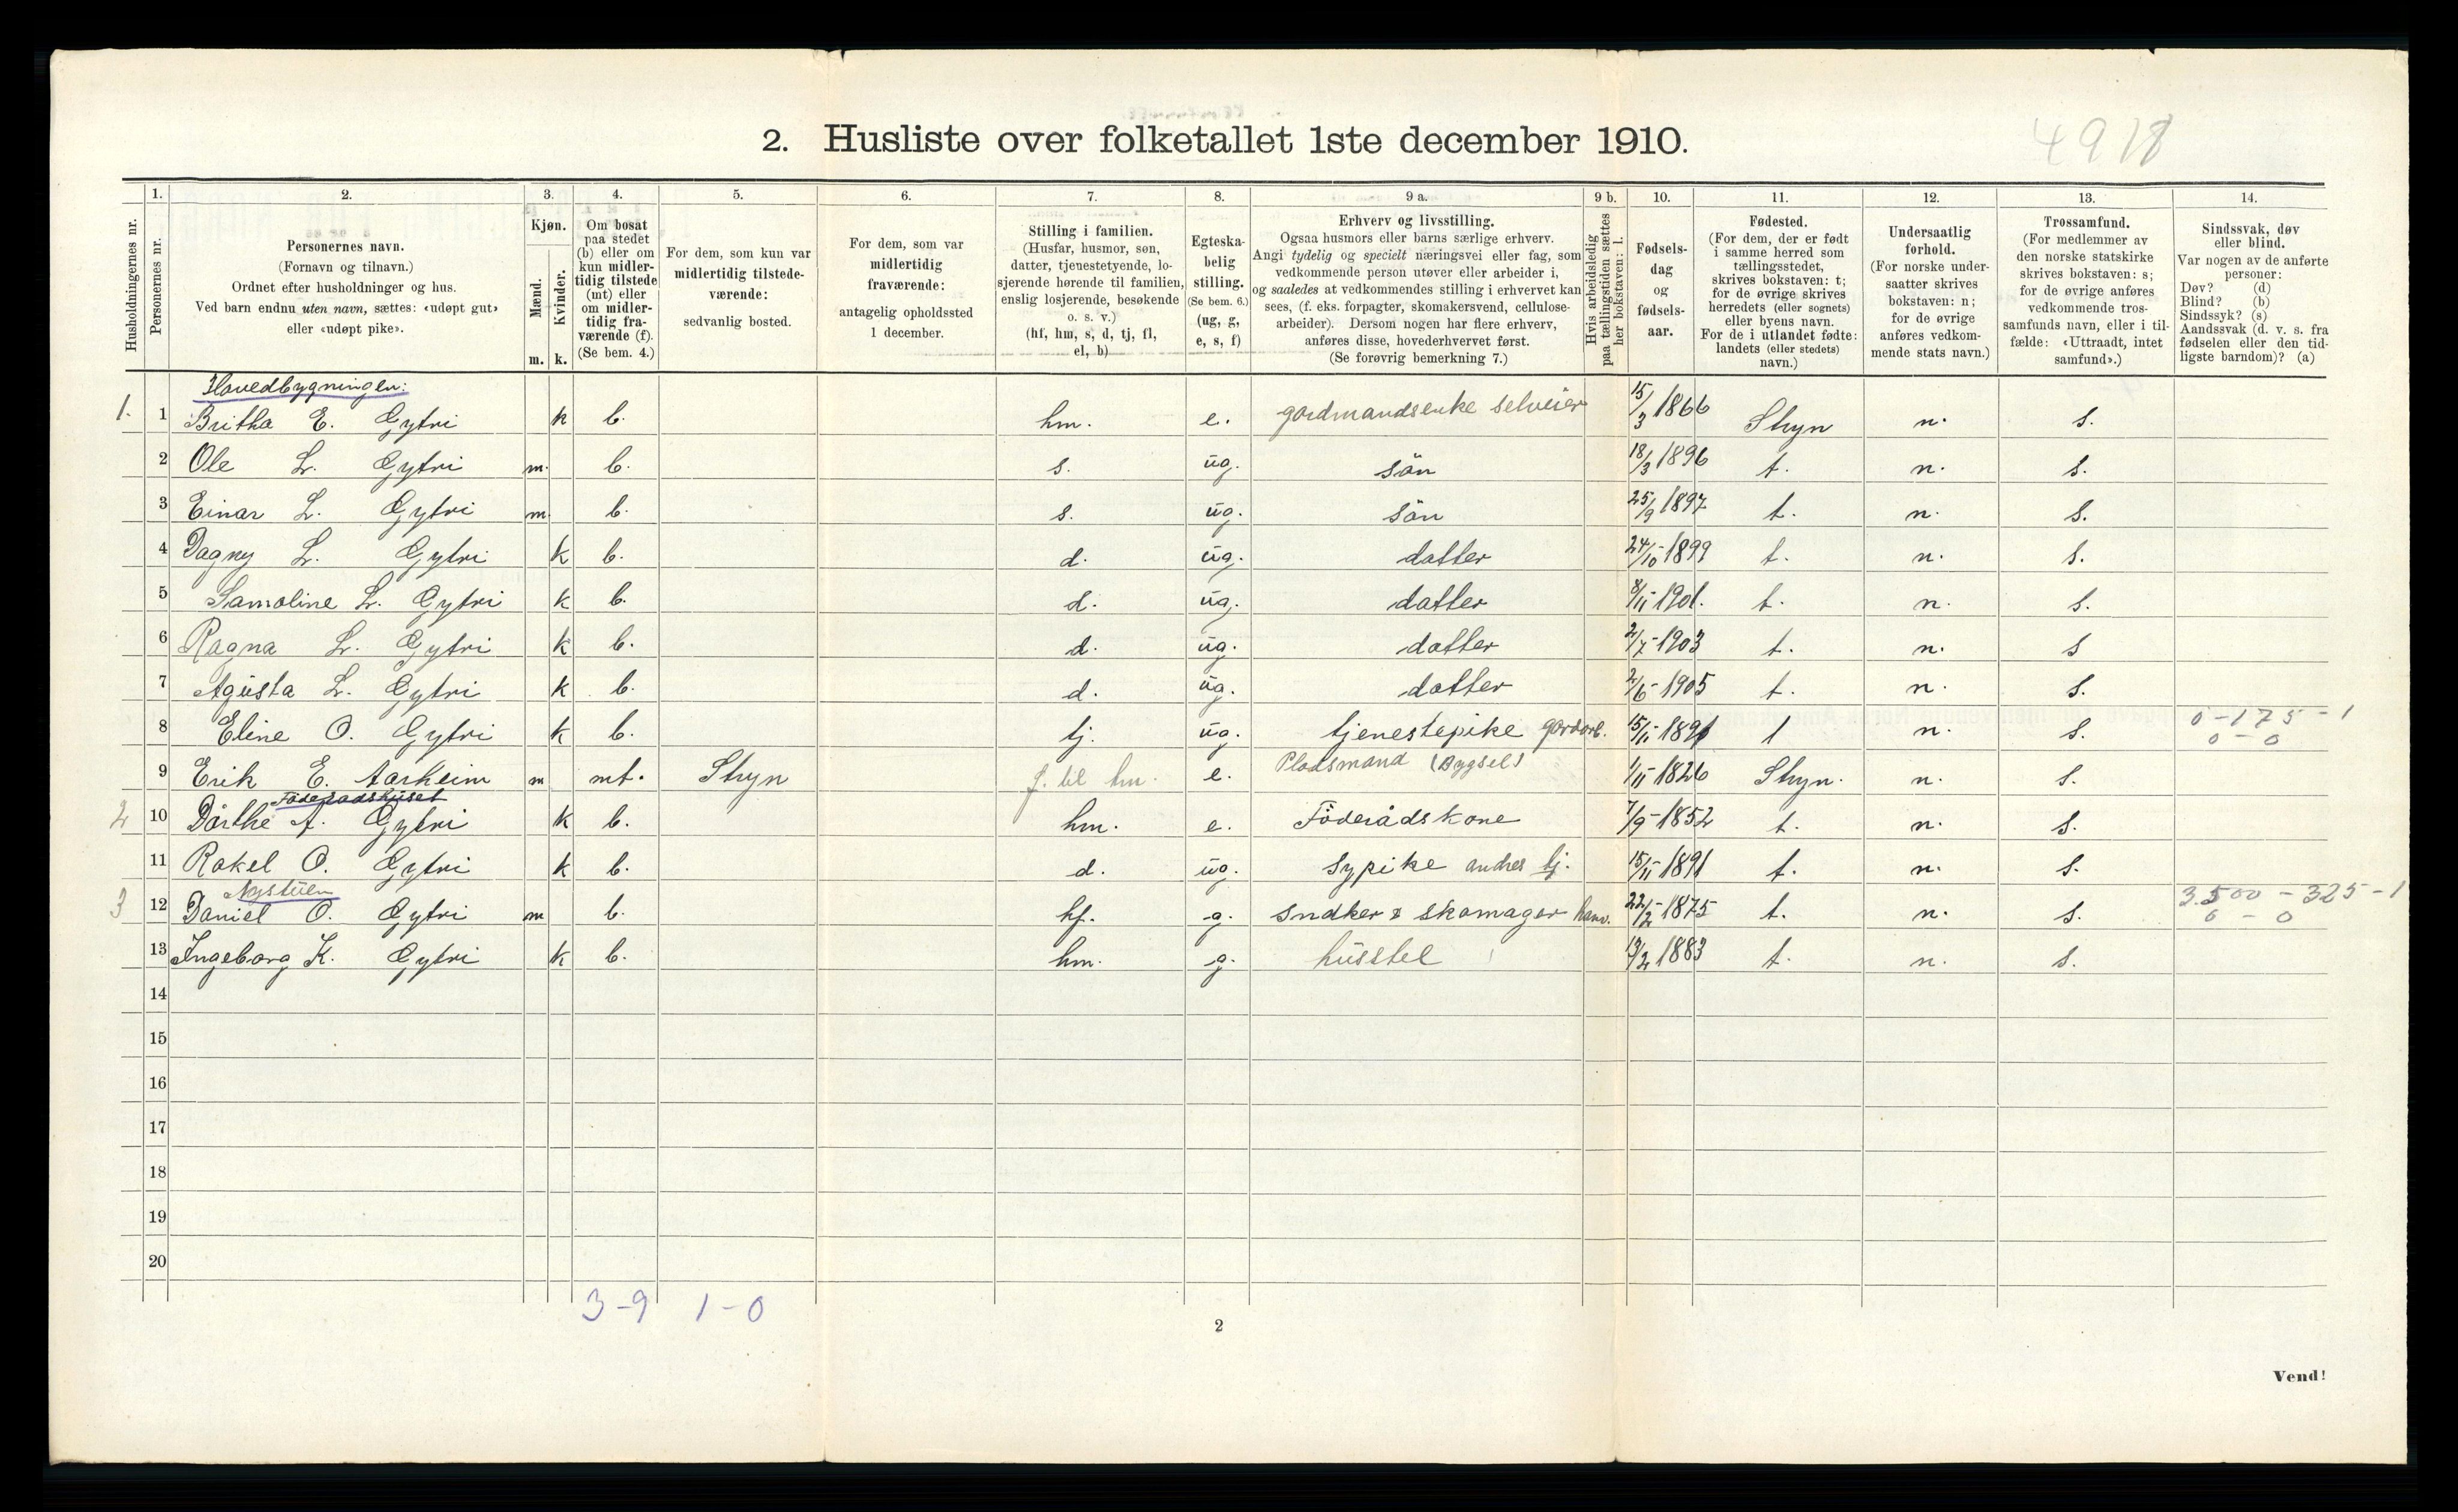 2. Husliste over folketallet 1ste december 1910.
4918
Husholdningernes nr.
1. Personernes nr.
2. Personernes navn.
(Fornavn og tilnavn.)
Ordnet efter husholdninger og hus.
Ved barn endnu uten navn, sættes: «udøpt gut»
eller «udøpt pike».
3. Kjøn.
Mænd. m.
Kvinder. k.
4. Om bosat
paa stedet
(b) eller om
kun midler-
tidig tilstede
(mt) eller
om midler-
tidig fra-
værende (f).
(Se bem. 4.)
5. For dem, som kun var
midlertidig tilstede-
værende:
sedvanlig bosted.
6. For dem, som var
midlertidig
fraværende:
antagelig opholdssted
1 december.
7. Stilling i familien.
(Husfar, husmor, søn,
datter, tjenestetyende, lo-
sjerende hørende til familien,
enslig losjerende, besøkende
o. s. v.)
(hf, hm, s, d, tj, fl,
el, b)
8. Egteska-
belig
stilling.
(Se bem. 6.)
(ug, g,
e, s, f)
9 a. Erhverv og livsstilling.
Ogsaa husmors eller barns særlige erhverv.
Angi tydelig og specielt næringsvei eller fag, som
vedkommende person utøver eller arbeider i,
og saaledes at vedkommendes stilling i erhvervet kan
sees, (f. eks. forpagter, skomakersvend, cellulose-
arbeider). Dersom nogen har flere erhverv,
anføres disse, hovederhvervet først.
(Se forøvrig bemerkning 7.)
9 b. Hvis arbeidsledig
paa tællingstiden sættes
her bokstaven: l.
10. Fødsels-
dag
og
fødsels-
aar.
11. Fødested.
(For dem, der er født
i samme herred som
tællingsstedet,
skrives bokstaven: t;
for de øvrige skrives
herredets (eller sognets)
eller byens navn.
For de i utlandet fødte:
landets (eller stedets)
navn.)
12. Undersaatlig
forhold.
(For norske under-
saatter skrives
bokstaven: n;
for de øvrige
anføres vedkom-
mende stats navn.)
13. Trossamfund.
(For medlemmer av
den norske statskirke
skrives bokstaven: s;
for de øvrige anføres
vedkommende tros-
samfunds navn, eller i til-
fælde: «Uttraadt, intet
samfund».)
14. Sindssvak, døv
eller blind.
Var nogen av de anførte
personer:
Døv? (d)
Blind? (b)
Sindssyk? (s)
Aandssvak (d. v. s. fra
fødselen eller den tid-
ligste barndom)? (a)
Hovedbygningen:
1. 1 Britha E. Gytri k b. hm. e. gardmandsenke selveier 15/3 1866 Stryn n. s.
2 Ole L. Gytri m. b. s. ug. sön 18/3 1896 t. n. s.
3 Einar L. Gytri m. b. s. ug. sön 25/9 1897 t. n. s.
4 Dagny L. Gytri k b. d. ug. datter 24/10 1899 t. n. s.
5 Samoline L. Gytri k b. d. ug. datter 8/11 1901. t. n. s.
6 Ragna L. Gytri k b. d. ug. datter 2/7-1903 t. n. s
7 Agusta L. Gytri k b. d. ug. datter 2/6-1905 t. n. s.
8 Eline O. Gytri k b. tj. ug. tjenestepike gardarb. 15/11-1891 t n. s. 0-175-1
0-0
9 Erik E. Aarheim m mt. Stryn f. til hm. e. Pladsmand (Bygsel) 1/11 1826 Stryn. n. s.
Föderadshuset
2 10 Dorthe A. Gytri k b. hm. e. Föderådskone 7/9-1852 t. n. s.
11 Rakel O. Gytri k b. d. ug. Sypike andres tj. 15/11 1891 t. n. s.
Nystuen
3 12 Daniel O. Gytri m b. hf. g. Sndker & skomager hanv. 22/2-1875 t. n. s. 3.500-325-1
0-0
13 Ingeborg K. Gytri k b. hm. g. husstel 13/2 1883 t. n. s.
14
15
16
17
18
19
20
3-9 1-0
2
Vend!